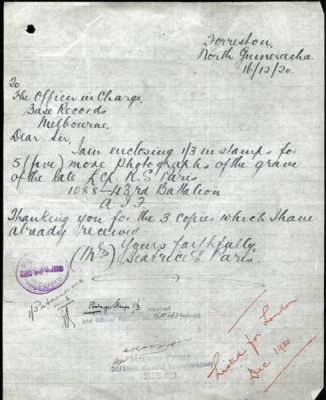 Forreston,
North Gumeracha
16/12/20.
To
The Officer in Charge,
Base Records
Melbourne.
Dear Sir,
I am enclosing 1/3 in stamps for
5 (five) more photographs of the grave
of the late L/Cpl. R. S. Paris
1088 - 43rd Battalion
A I F
Thanking you for the 3 copies which I have
already received
Yours faithfully,
(Mrs) Beatrice E Paris.
Postage Stamps 1/3 received
and Official Receipt No.
Listed for London
Dec 1920